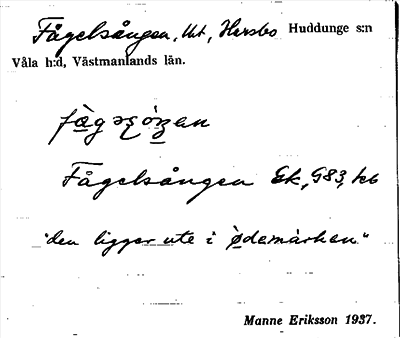 Fågelsången, Utt, Hersbo Huddunge s:n
Våla h:d, Västmanlands län.
Fågelsången Ek, G83,
"den ligger ute i ödemarken."
Manne Eriksson 1937.